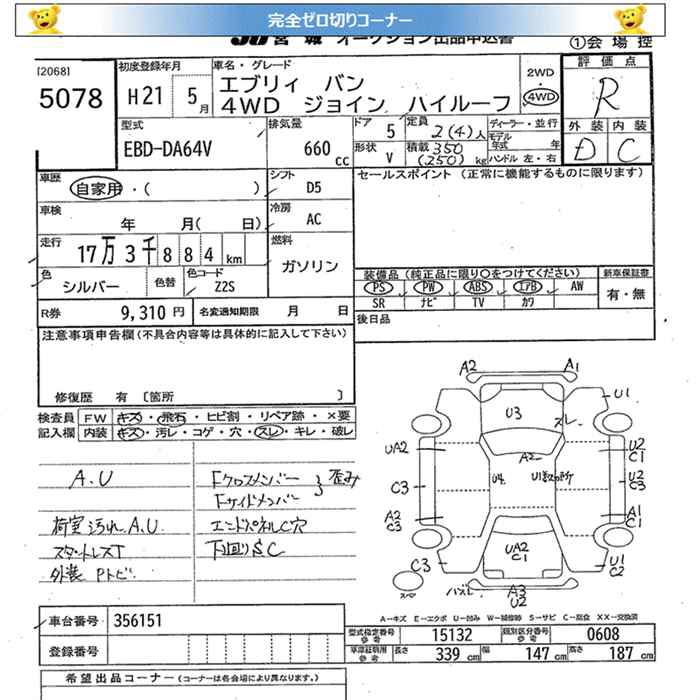 完全ゼロ切りコーナー
JU 宮城 オークション出品申込書
①会場控
[2068]
5078
初度登録年月
H21 5月
車名・グレード
エブリィ バン
4WD ジョイン ハイルーフ
2WD
・
4WD
評価点
R
外装 内装
D C
型式
EBD-DA64V
排気量
660 cc
ドア 5
形状 V
定員 2(4)人
積載 350 (250) kg
ディーラー・並行
モデル年式 年
ハンドル 左・右
車歴
自家用・( )
シフト D5
セールスポイント (正常に機能するものに限ります)
車検
年 月( 日)
冷房 AC
走行
17万3千884km
燃料
ガソリン
色
シルバー
色替
色コード
Z2S
装備品(純正品に限り○をつけてください)
新車保証書
PS PW ABS エアB AW
SR ナビ TV カワ
有・無
R券 9,310円
名変通知期限 月 日
後日品
注意事項申告欄(不具合内容等は具体的に記入して下さい)
修復歴 有 〔箇所 〕
検査員記入欄
FW キズ・飛石・ヒビ割・リペア跡・×要
内装 キズ・汚レ・コゲ・穴・スレ・キレ・破レ
A.U
Fクロスメンバー
Fサイドメンバー
歪み
荷室汚れ.A.U
エンドパネルC穴
スタットレスT
下回りSC
外装Pトビ
A2
A1
U1
U3
スレ
UA2
A2
U2
C1
C3
U4
U2
C3
A2
C3
A1
C1
UA2
C1
C3
U1
C2
A3
U2
A-キズ E-エクボ U-凹み W-補修跡 S-サビ C-腐食 XX-交換済
車台番号 356151
登録番号
型式指定番号 参考 15132
類別区分番号 参考 0608
車庫証明用 参考 長さ 339cm 幅 147cm 高さ 187cm
希望出品コーナー(コーナーは各会場により異なります。)